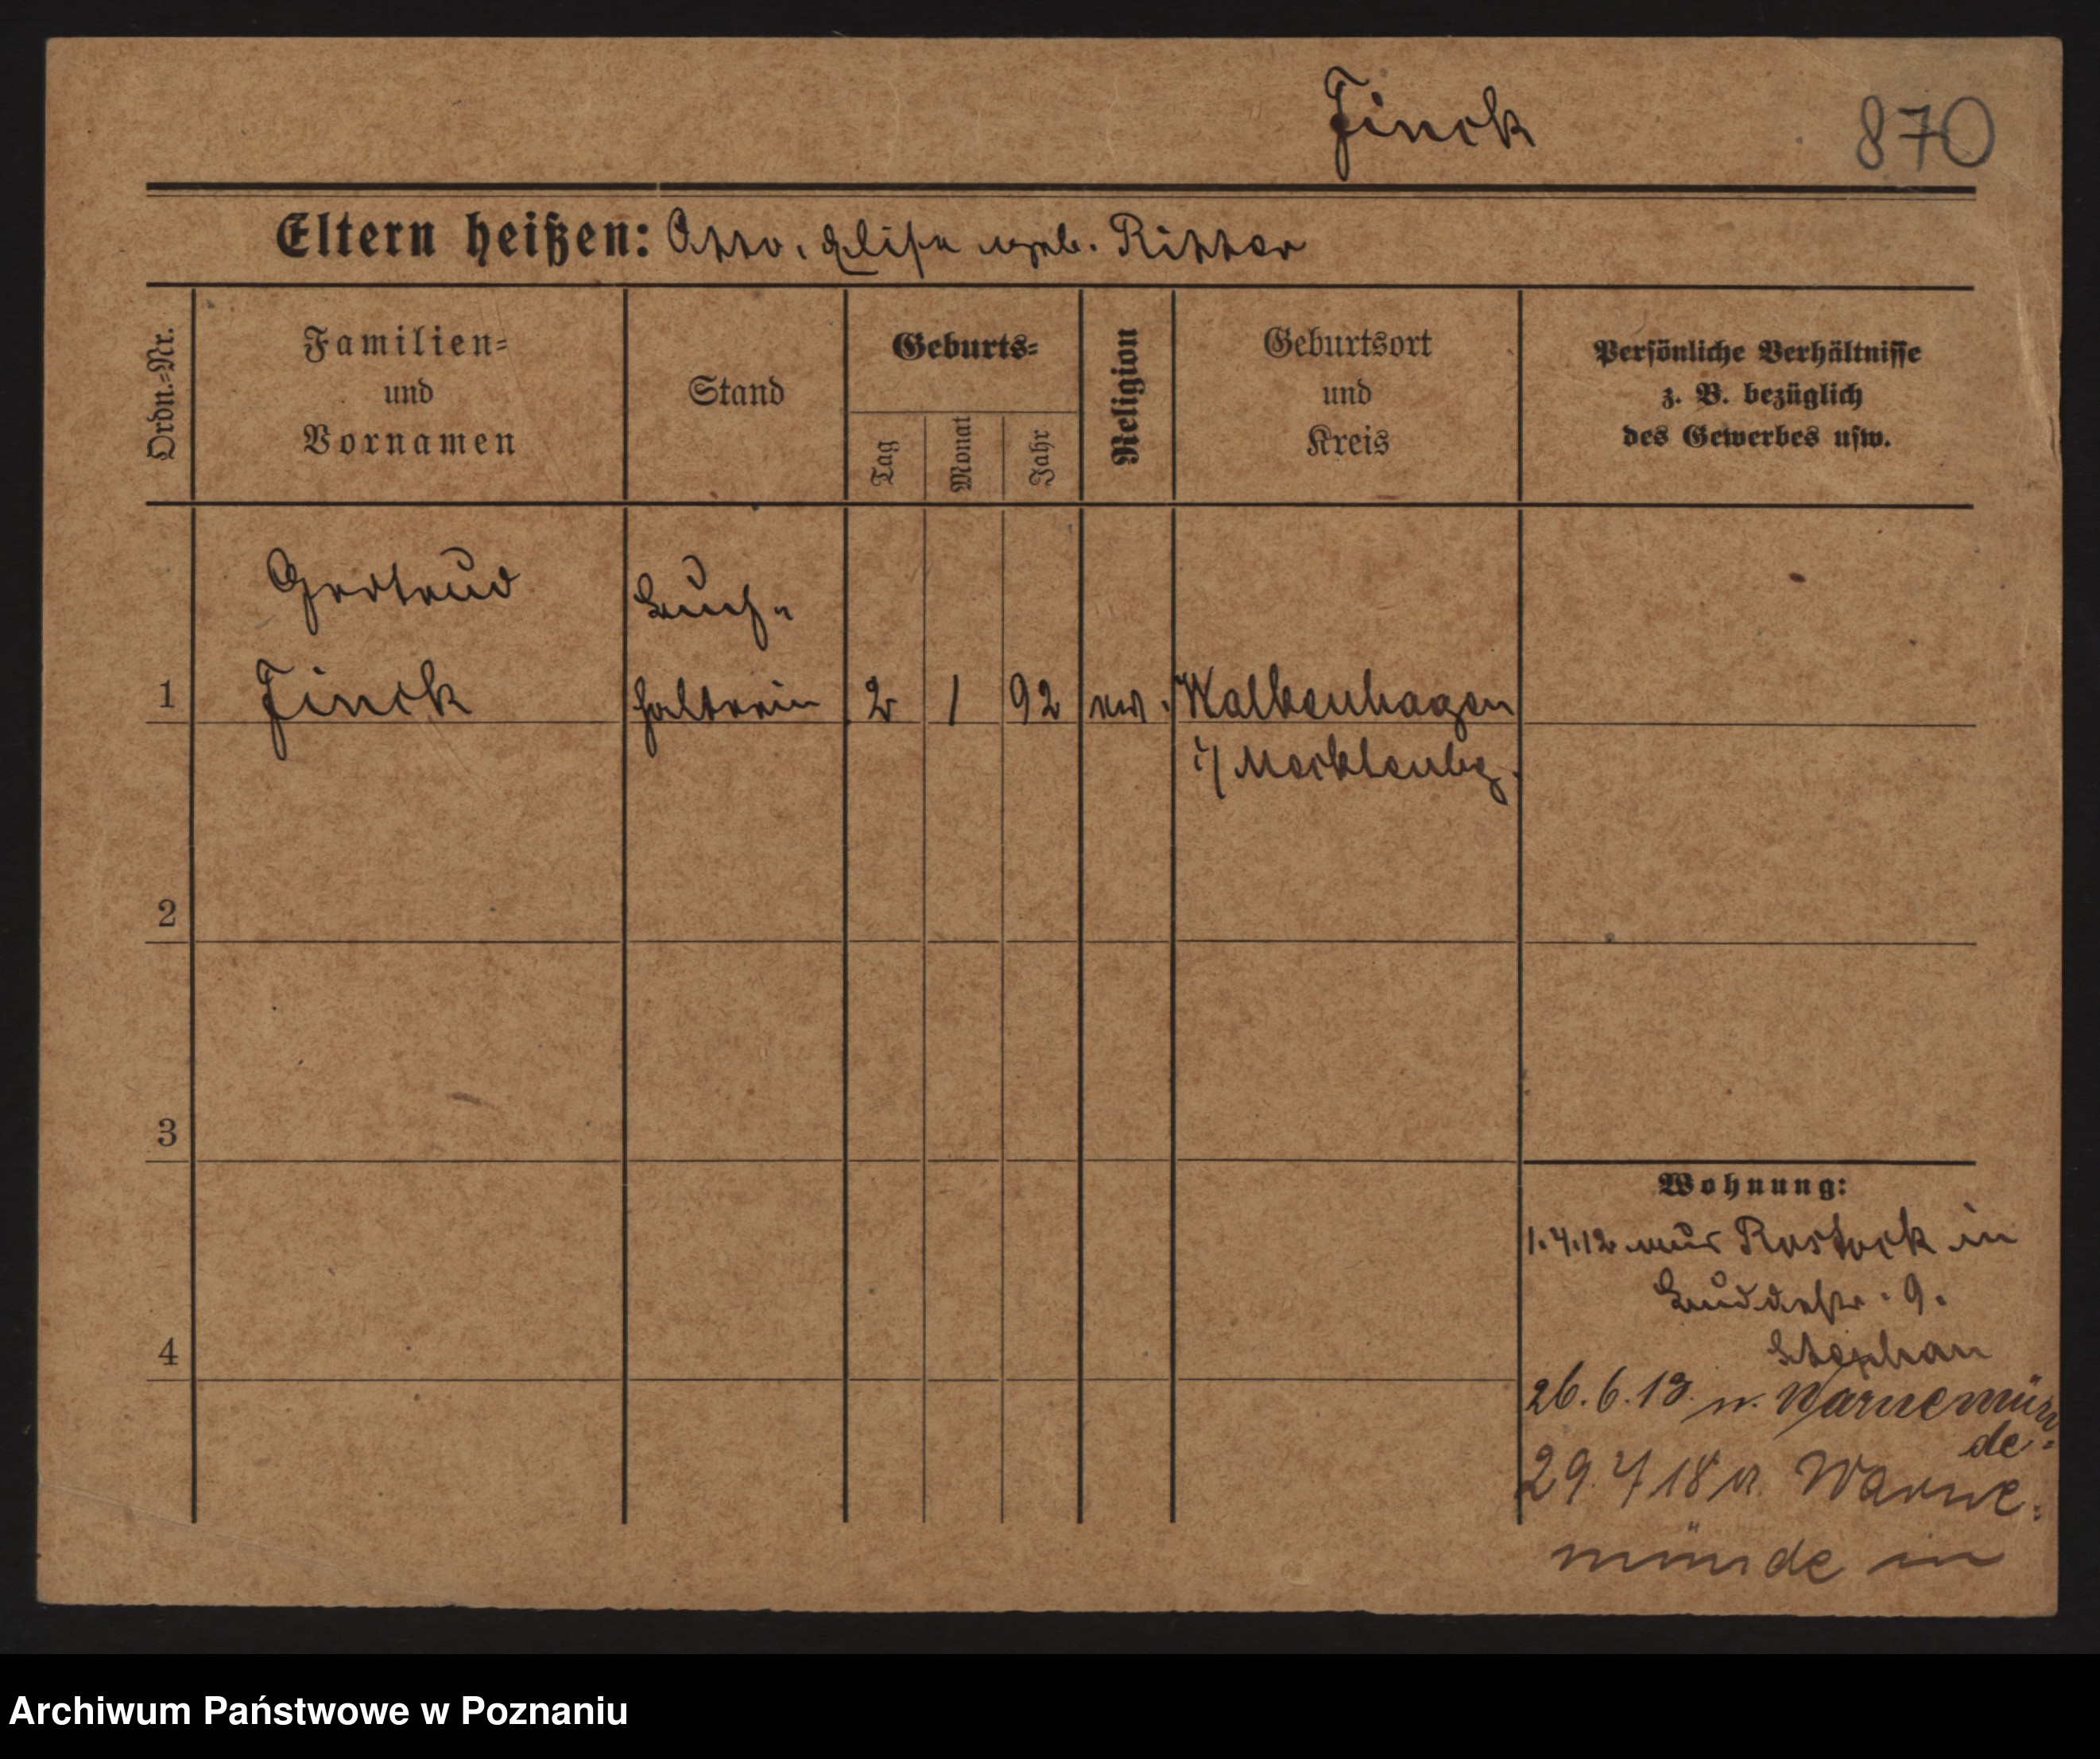 Finck 870
Eltern heißen: Otto, Elise geb. Ritter
Ordn.-Nr. Familien- und Vornamen Stand Geburts- Tag Monat Jahr Religion Geburtsort und Kreis Persönliche Verhältnisse z. B. bezüglich des Gewerbes usw.
Gertrud Buch-
1 Finck halterin 2 1 92 ev. Walkenhagen
i/ Mecklenbg.
2
3
Wohnung:
1.4.12 aus Rostock in
Buddestr. 9.
4 Stephan
26.6.13. n. Warnemün
de.
29.4 18 v. Warne-
münde in
Archiwum Państwowe w Poznaniu